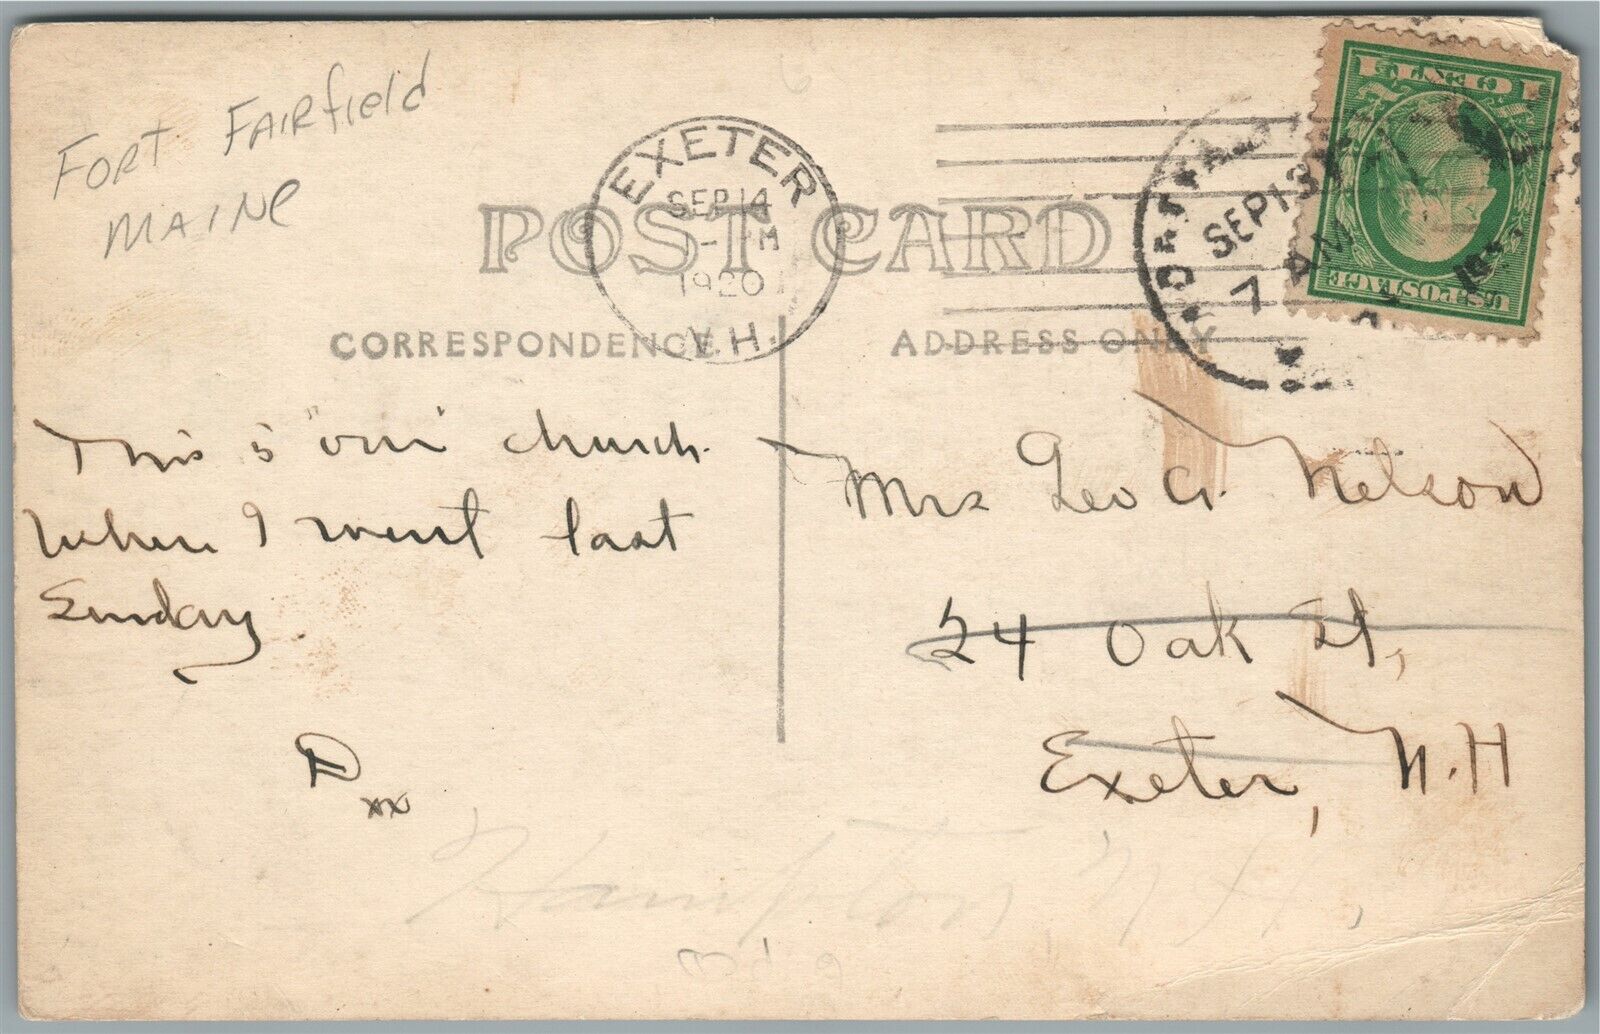 FORT FAIRfield
MAINe
EXETER
SEP 14
1920
N.H.
SEP 13
7 AM
U.S. POSTAGE
1 CENT 1
POST CARD
CORRESPONDENCE.
ADDRESS ONLY
This is "our" church.
Where I went last
Sunday.
D
xx
Mrs Geo G. Nelson
24 Oak St,
Exeter, N.H
Hampton, N.H.